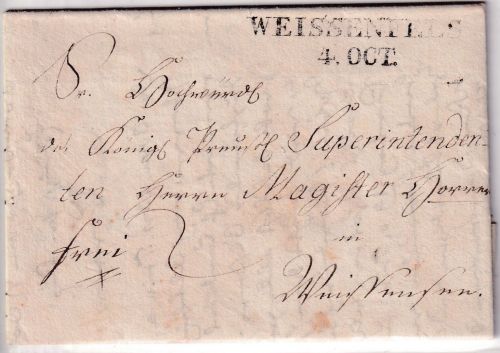 WEISSENFELS
4. OCT.
Sr. Hochwürd
des Königl Preuß Superintenden-
ten Herrn Magister Horrer
frei
in
Weissensee.